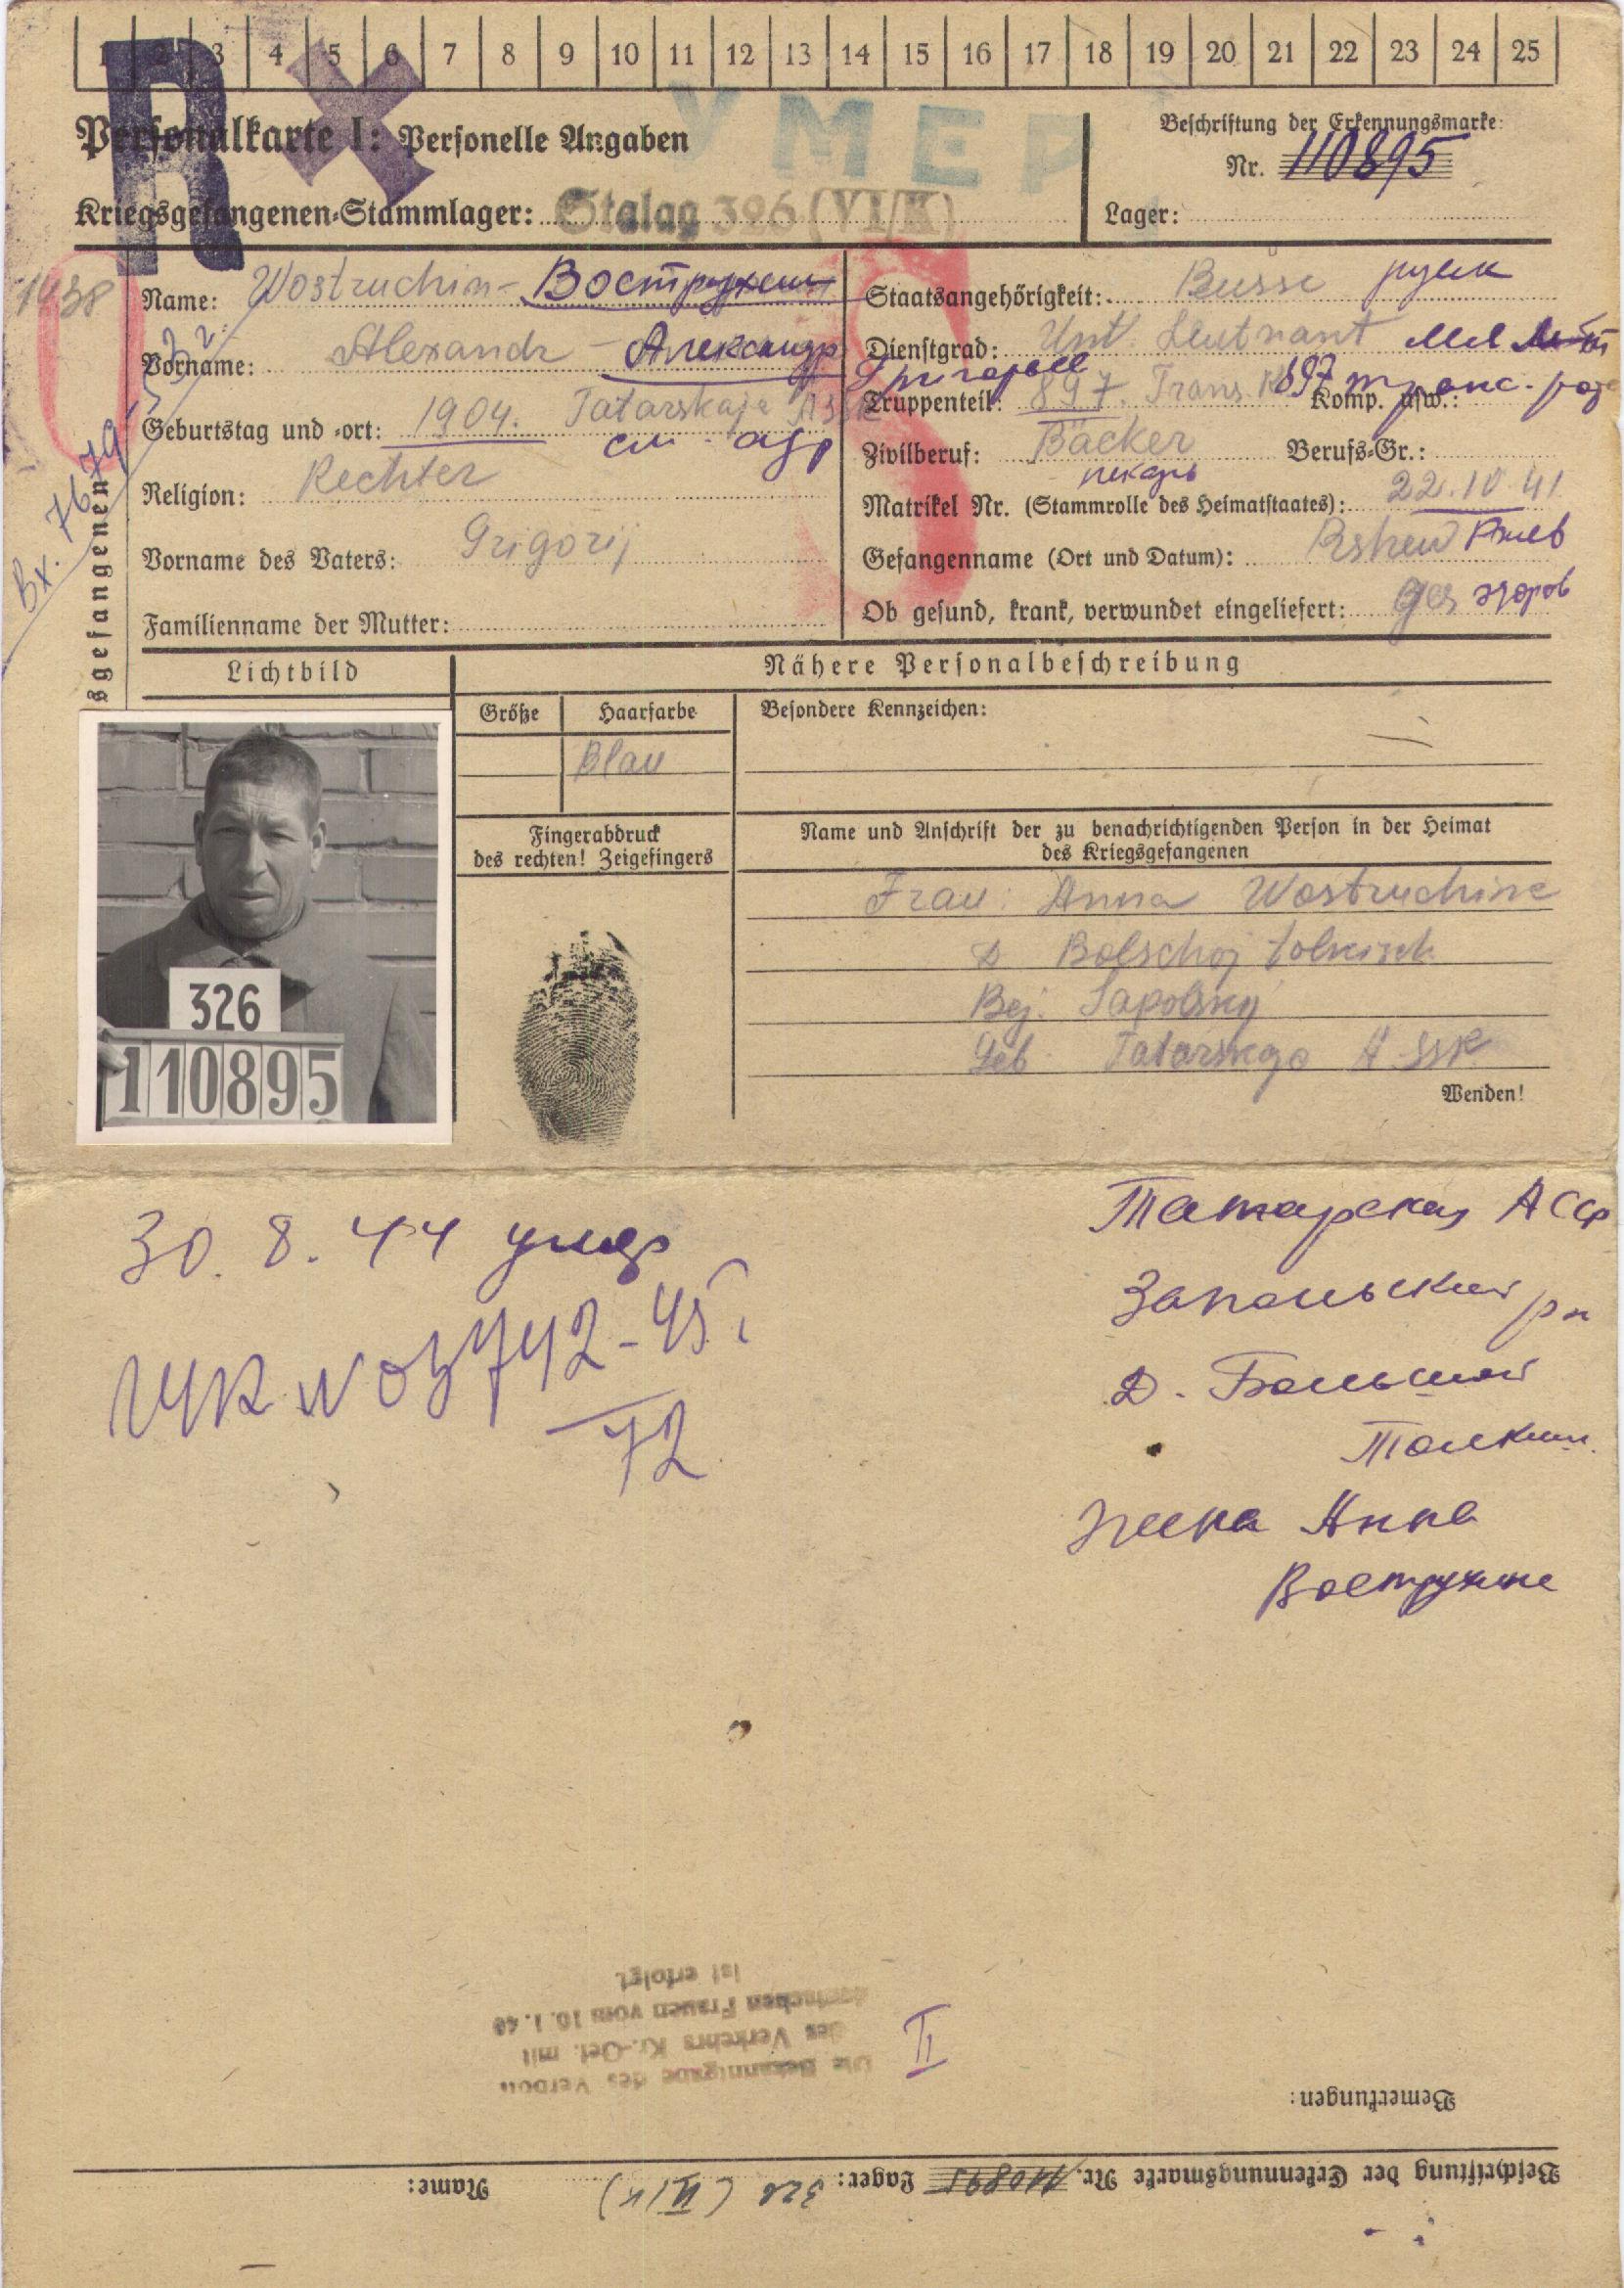 1 2 3 4 5 6 7 8 9 10 11 12 13 14 15 16 17 18 19 20 21 22 23 24 25
R
УМЕР
Personalkarte I: Personelle Angaben
Kriegsgefangenen-Stammlager: Stalag 326 (VI/K)
Beschriftung der Erkennungsmarke:
Nr. 110895
Lager:
1938
Name: Wostruchin - Вострухин
Vorname: Alexandr - Александр
Григорьев
Geburtstag und -ort: 1904. Tatarskaje ASSR
см. адр
Religion: Rechter
Vorname des Vaters: Grigorij
Familienname der Mutter:
Staatsangehörigkeit: Russe русск
Dienstgrad: Unt. Leutnant мл. л-т
Truppenteil: 897. Trans. Komp. usw.: 897 транс. рот
Zivilberuf: Bäcker Berufs-Gr.:
пекарь
Matrikel Nr. (Stammrolle des Heimatstaates): 22.10.41
Gefangenname (Ort und Datum): Rshew Ржев
Ob gesund, krank, verwundet eingeliefert: ges здоров
Вх. 7679
sgefangenen
Lichtbild
Nähere Personalbeschreibung
Größe Haarfarbe Besondere Kennzeichen:
Blau
326
110895
Fingerabdruck
des rechten! Zeigefingers
Name und Anschrift der zu benachrichtigenden Person in der Heimat
des Kriegsgefangenen
Frau: Anna Wostruchine
D Bolschoj Tolkisch
Bej. Sapolsky
Geb. Tatarskaja A SSR
Wenden!
30. 8. 44 умер
Татарская АССР
Запольский рн
Д. Большой
Толкиш.
Жена Анна
Вострухине
УК N 03742-45г
72
II
Die Bekanntgabe des Verbots
des Verkehrs Kr.-Gef. mit
deutschen Frauen vom 10.1.40
ist erfolgt.
Bemerkungen:
Beschriftung der Erkennungsmarke Nr. 110895 Lager: 326 (VI K) Name: